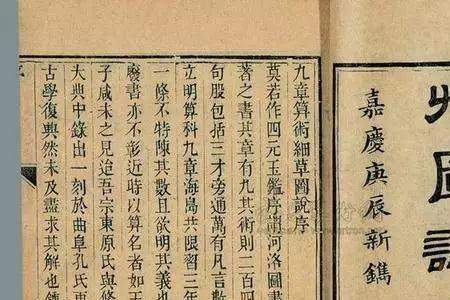 艸圖說
嘉慶庚辰新鐫
九章算術細草圖說序
莫若作四元玉鑑序謂河洛圖書
著之書其章有九其術則二百四
句股包括三才旁通萬有凡言數
立明算科九章海島共限習三年
一條不特陳其數且欲明其義也
廢書亦不彰近時以算名者如王
子咸未之見迨吾宗東原氏與修
大典中錄出一刻於曲阜孔氏
古學復興然未及盡求其解也